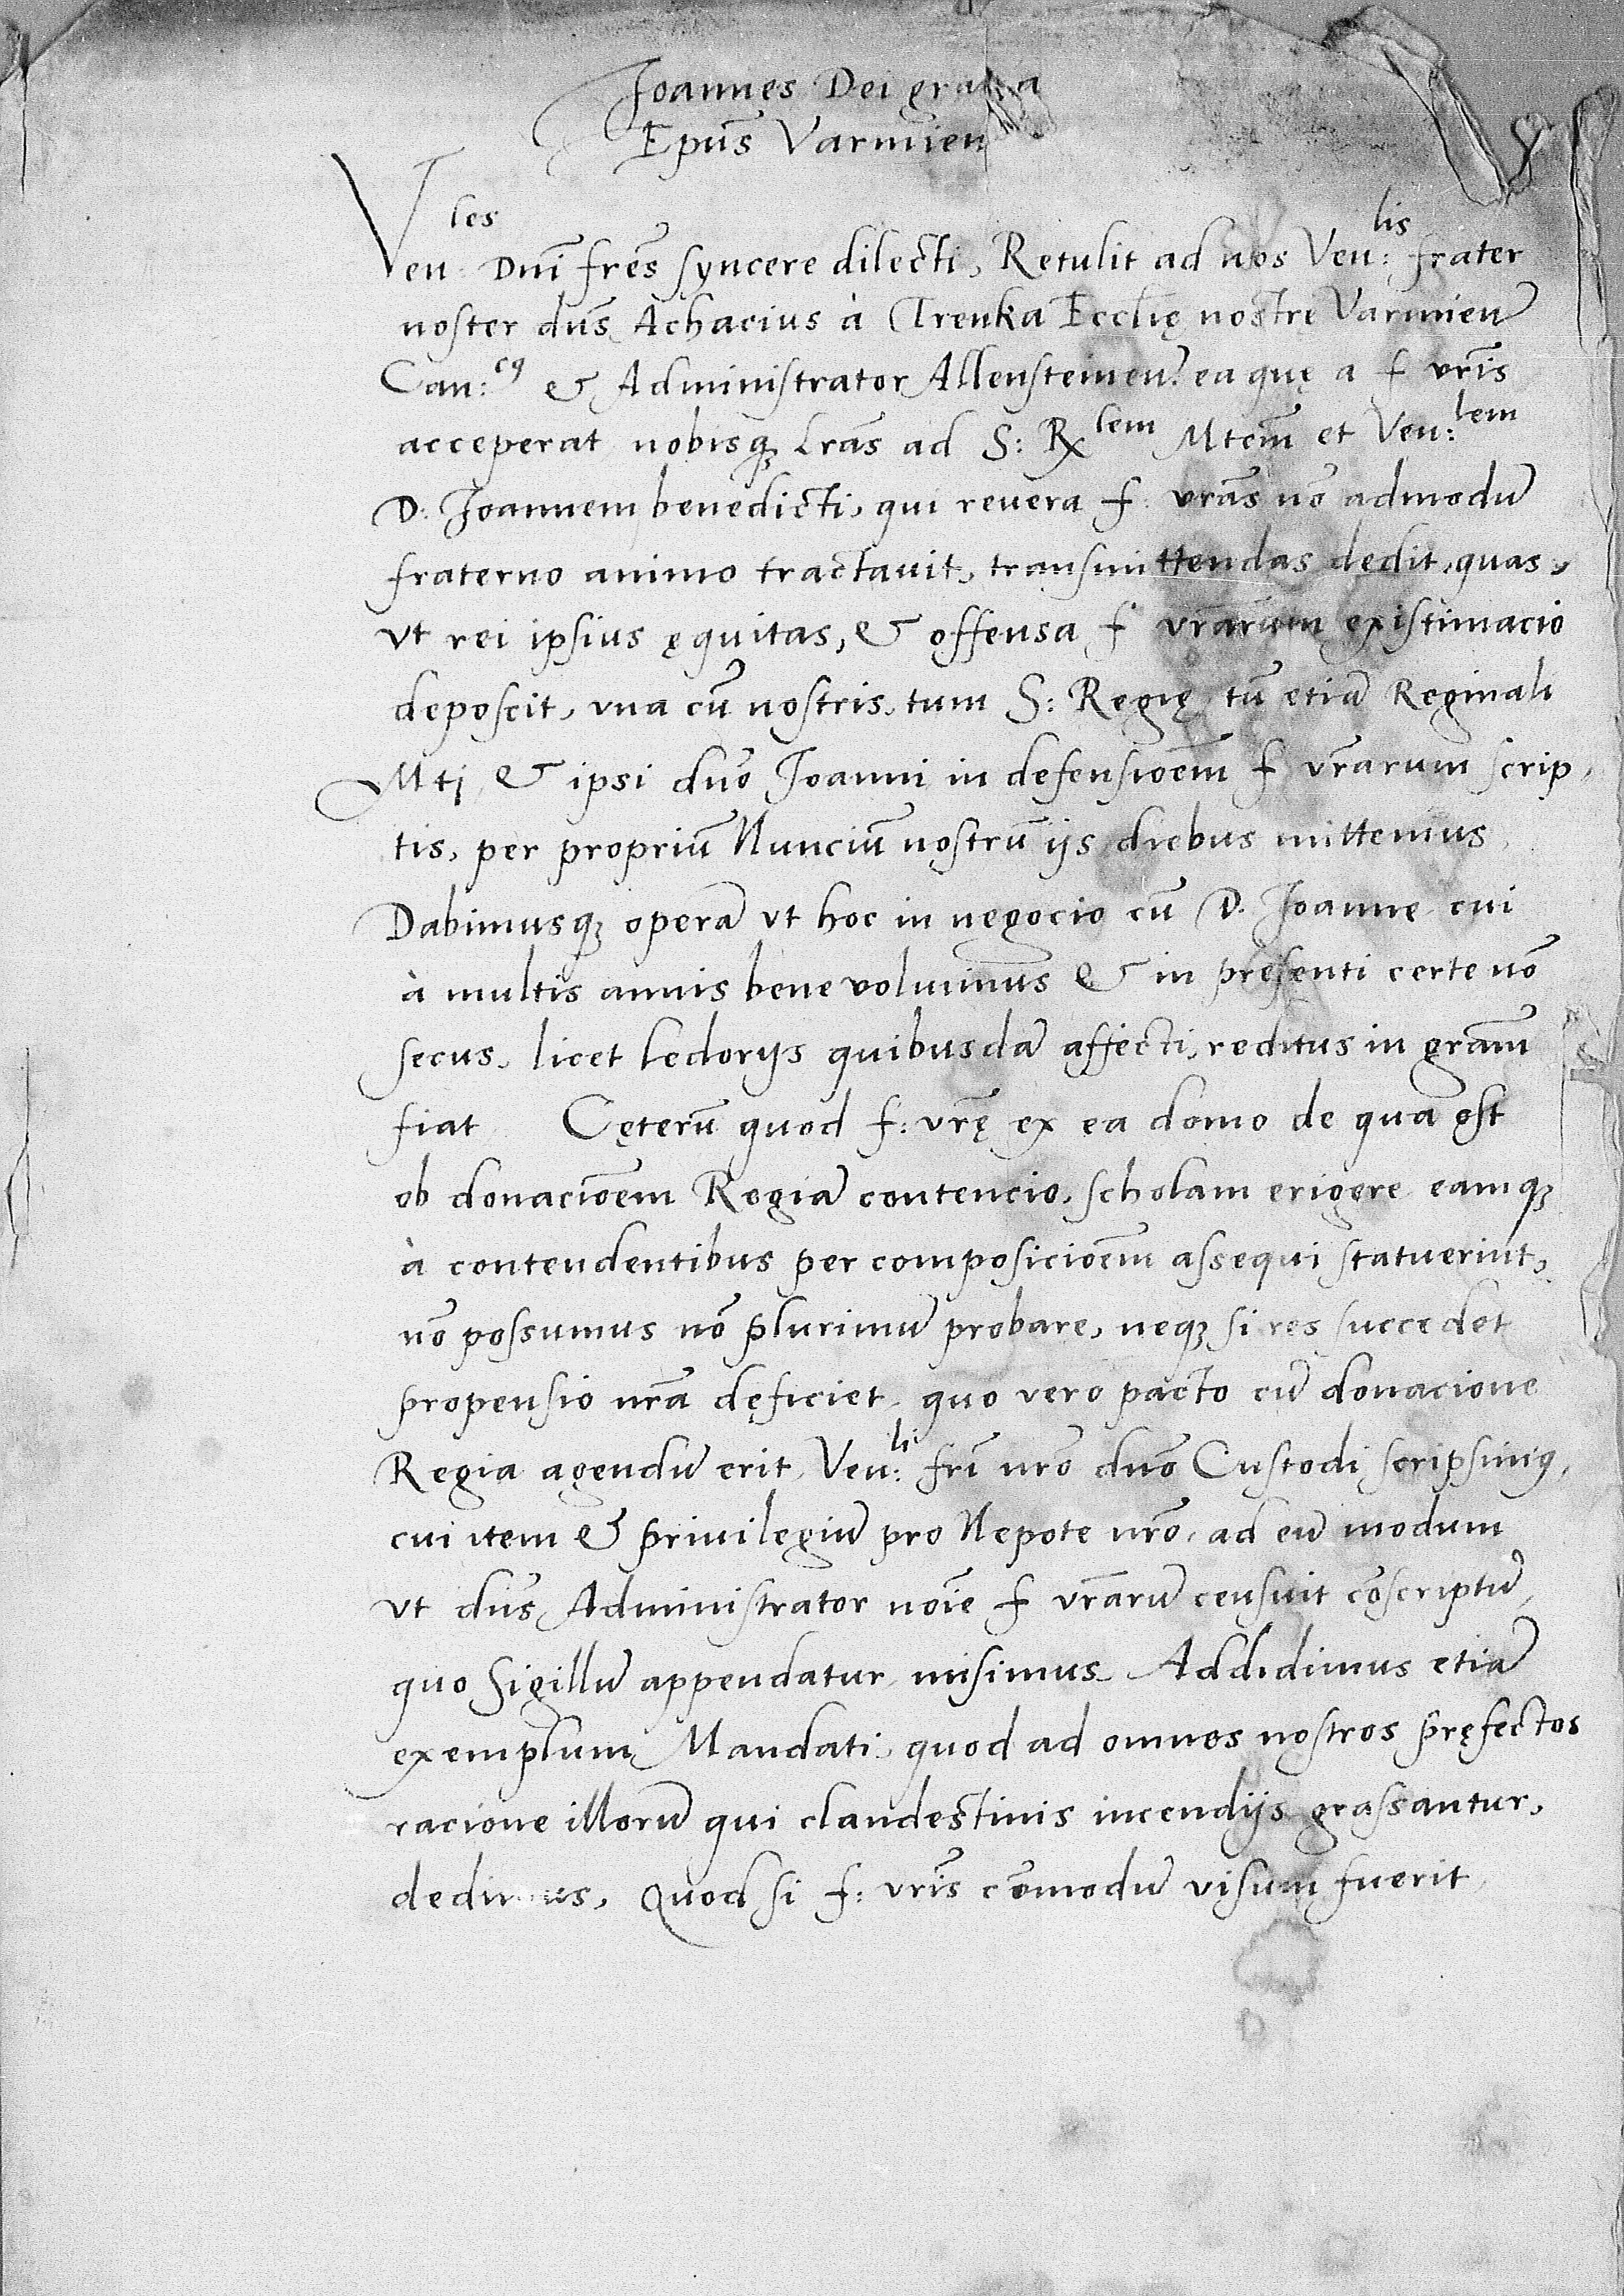 Joannes Dei gratia
Epūs Varmien
Venles Dnī frēs syncere dilecti, Retulit ad nos Ven:lis frater
noster dnūs Achacius à Trenka Ecclię nostrę Varmien
Can:cꝯ & Administrator Allensteinen. ea quę a f vrīs
acceperat nobisqꝫ Lrās ad S: Rlem Mtem̄ et Ven:lem
D: Joannem benedicti, qui revera f: vrās nō admodū
fraterno animo tractauit, transmittendas dedit, quas,
vt rei ipsius ęquitas, & offensa f vrārum existimacio
deposcit, vna cū nostris, tum S: Regię tū etiā Reginali
Mti, & ipsi dnō Joanni in defensioēm f vrārum scrip,
tis, per propriū Nunciū nostrū ijs diebus mittemus,
Dabimusqꝫ operā vt hoc in negocio cū D. Joanne cui
à multis annis bene voluimus & in presenti certe nō
secus, licet ledorijs quibusdā affecti, reditus in grām
fiat Cęterū quod f: vrę̄ ex ea domo de qua est
ob donacioēm Regiā contencio, scholam erigere eamqꝫ
à contendentibus per composicioēm assequi statuerint,
nō possumus nō plurimū probare, neqꝫ si res succedet
propensio nrā deficiet, quo vero pacto cū donacione
Regia agendū erit, Ven:li frī nrō dnō Custodi scripsimꝯ,
cui item & priuilegiū pro Nepote nrō, ad eū modum
vt dnūs Administrator noīe f vrārū censuit cōscriptū,
quo Sigillū appendatur, misimus. Addidimus etiā
exemplum Mandati, quod ad omnes nostros pręfectos
racione illorū qui clandestinis incendijs grassantur,
dedimus, Quod si f: vrīs cōmodū visum fuerit,